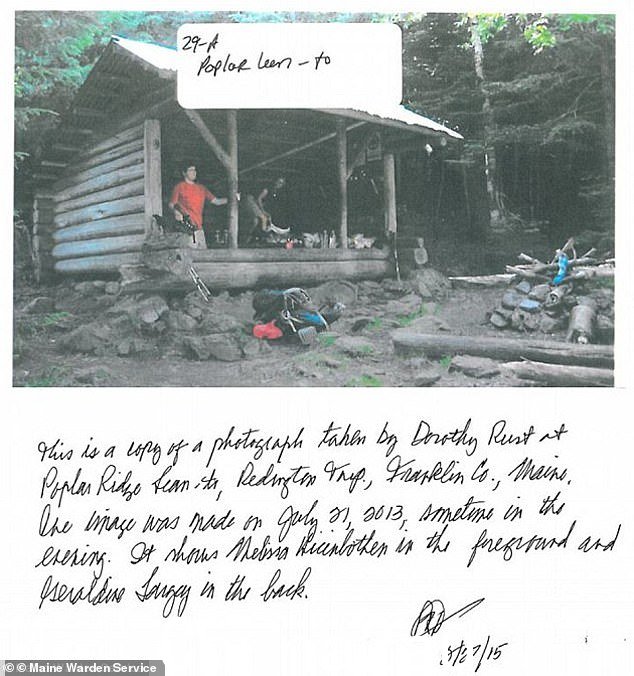 29-A
Poplar Lean-to
This is a copy of a photograph taken by Dorothy Rust at
Poplar Ridge Lean-to, Redington Twp, Franklin Co., Maine.
The image was made on July 21, 2013, sometime in the
evening. It shows Melissa in the foreground and
Geraldine Largay in the back.
/15
© © Maine Warden Service